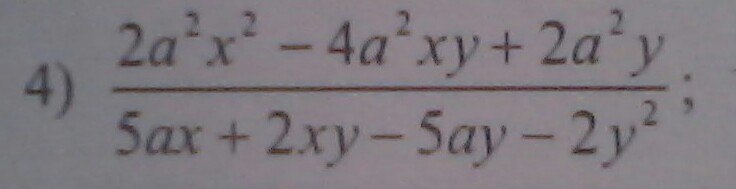 4) \frac{2a^2x^2 - 4a^2xy + 2a^2y}{5ax + 2xy - 5ay - 2y^2};